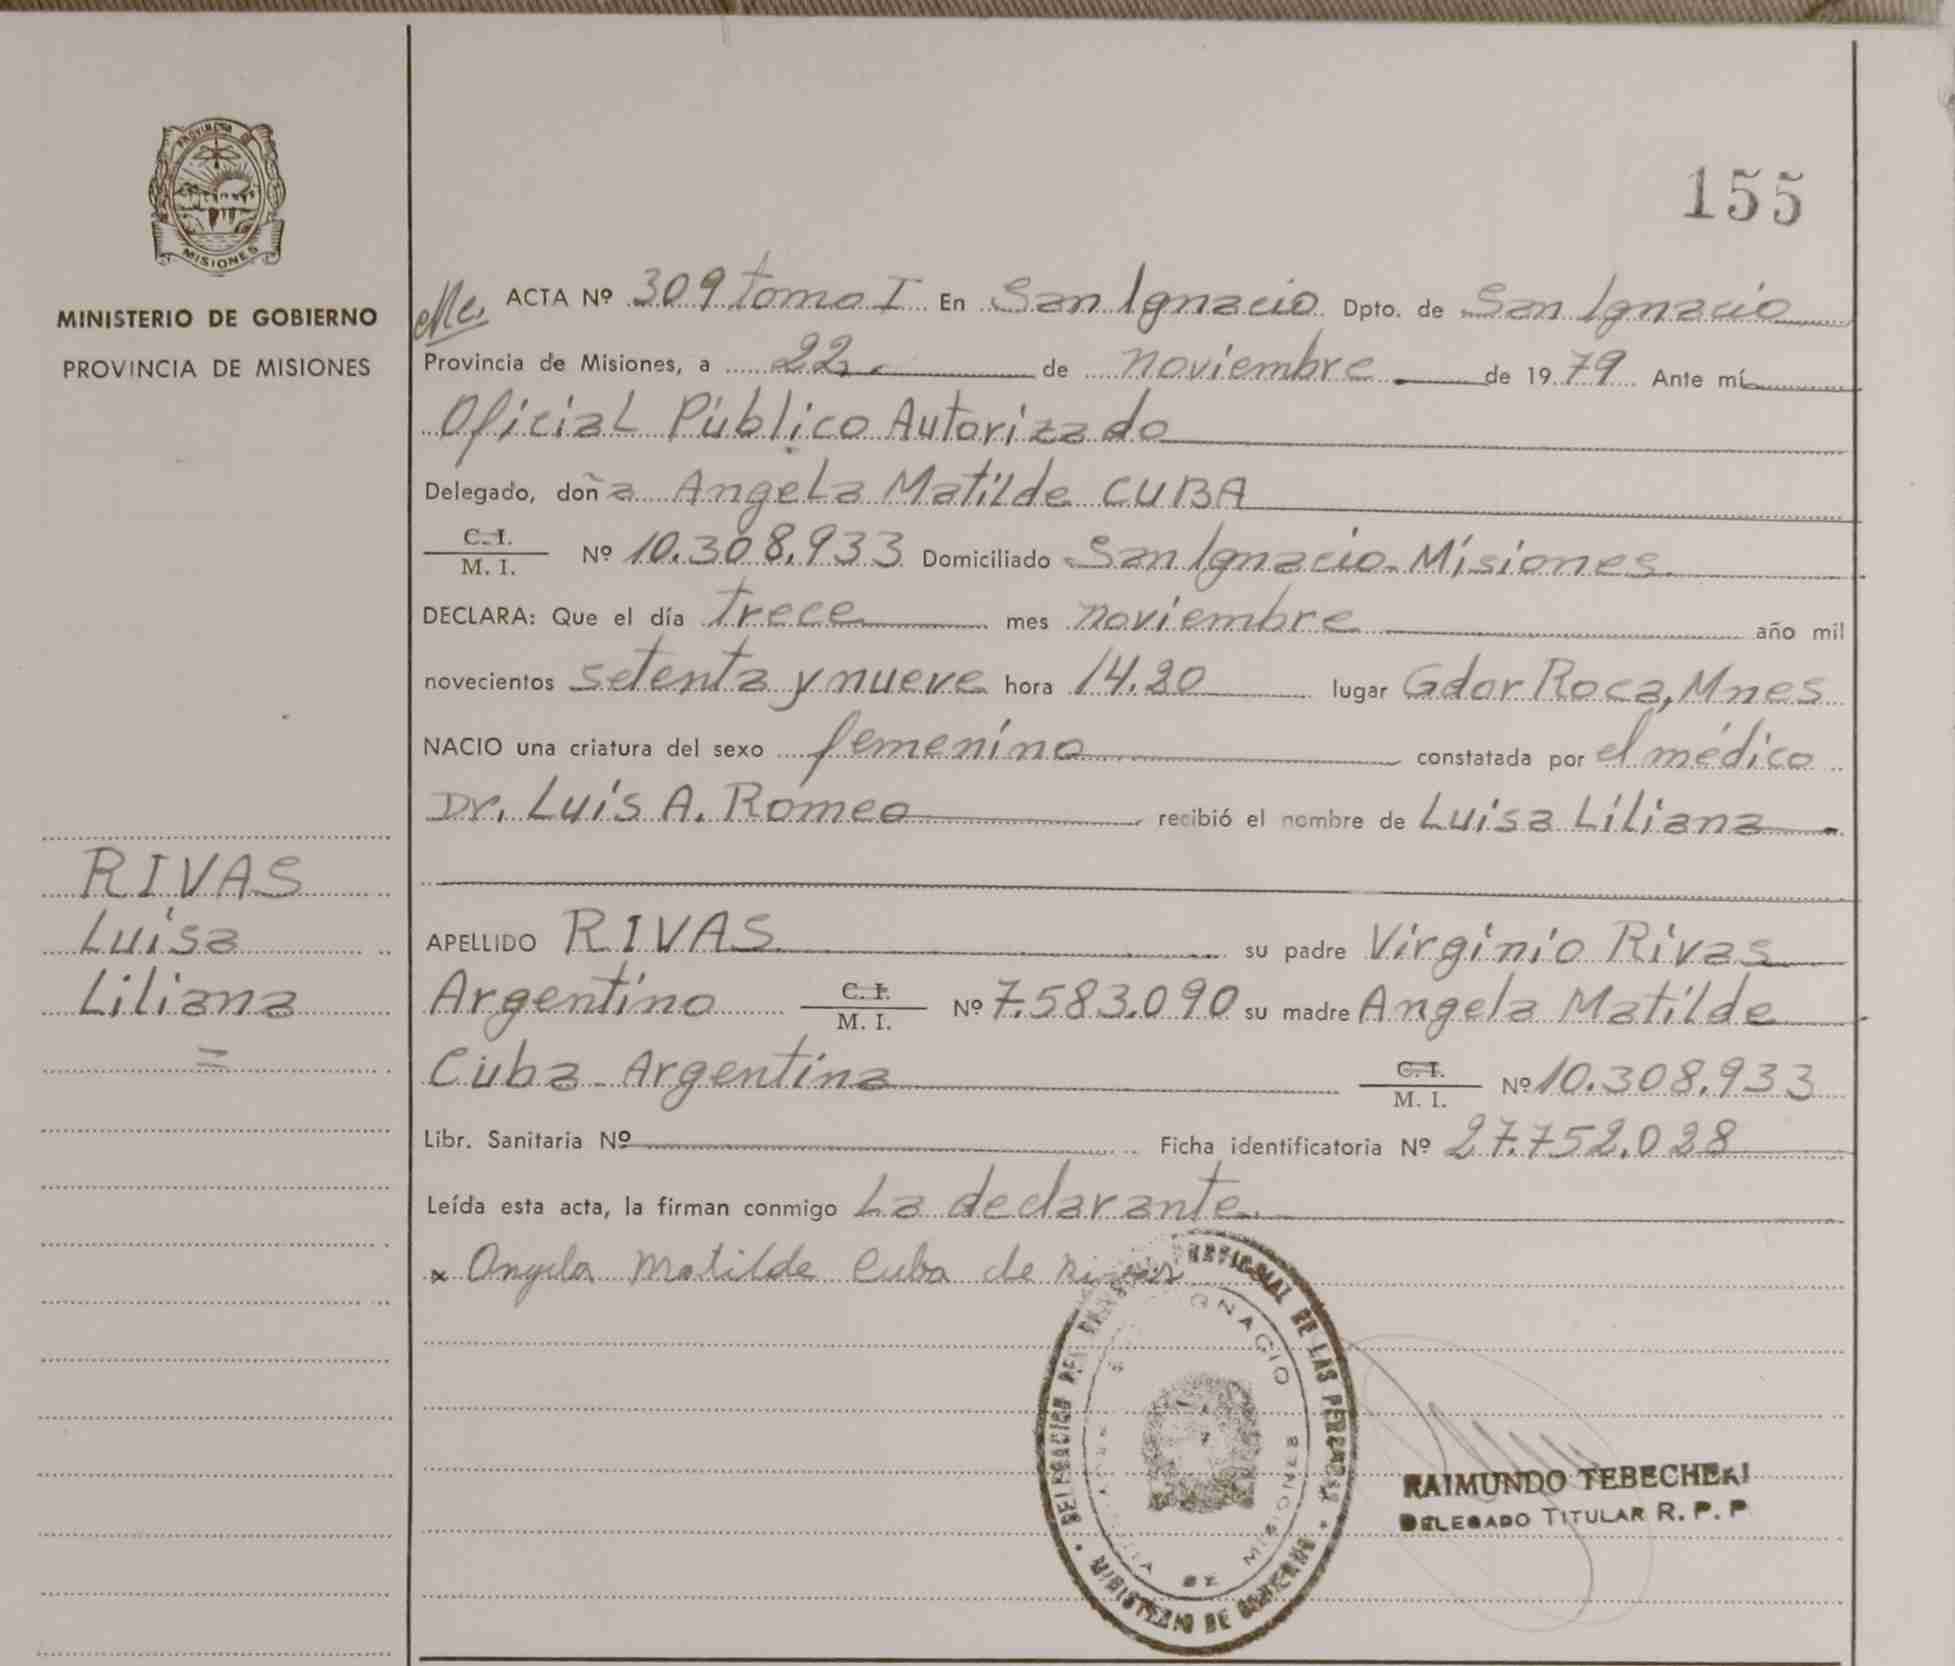 PROVINCIA DE
MISIONES
MINISTERIO DE GOBIERNO
PROVINCIA DE MISIONES
RIVAS
Luisa
Liliana
=
155
ACTA Nº 309 tomo I En San Ignacio Dpto. de San Ignacio
Provincia de Misiones, a 22 de noviembre de 1979 Ante mí
Oficial Público Autorizado
Delegado, doña Angela Matilde CUBA
C. I. / M. I. Nº 10.308.933 Domiciliado San Ignacio - Misiones
DECLARA: Que el día trece mes noviembre año mil
novecientos setenta y nueve hora 14.20 lugar Gdor Roca, Mnes
NACIO una criatura del sexo femenino constatada por el médico
Dr. Luis A. Romeo recibió el nombre de Luisa Liliana
APELLIDO RIVAS su padre Virginio Rivas
Argentino C. I. / M. I. Nº 7.583.090 su madre Angela Matilde
Cuba - Argentina C. I. / M. I. Nº 10.308.933
Libr. Sanitaria Nº Ficha identificatoria Nº 27.752.028
Leída esta acta, la firman conmigo La declarante
x Angela Matilde Cuba de Rivas
DELEGACION DE LAS PERSONAS
IGNACIO
MISIONES
MINISTERIO DE GOBIERNO
RAIMUNDO TEBECHERI
DELEGADO TITULAR R. P. P